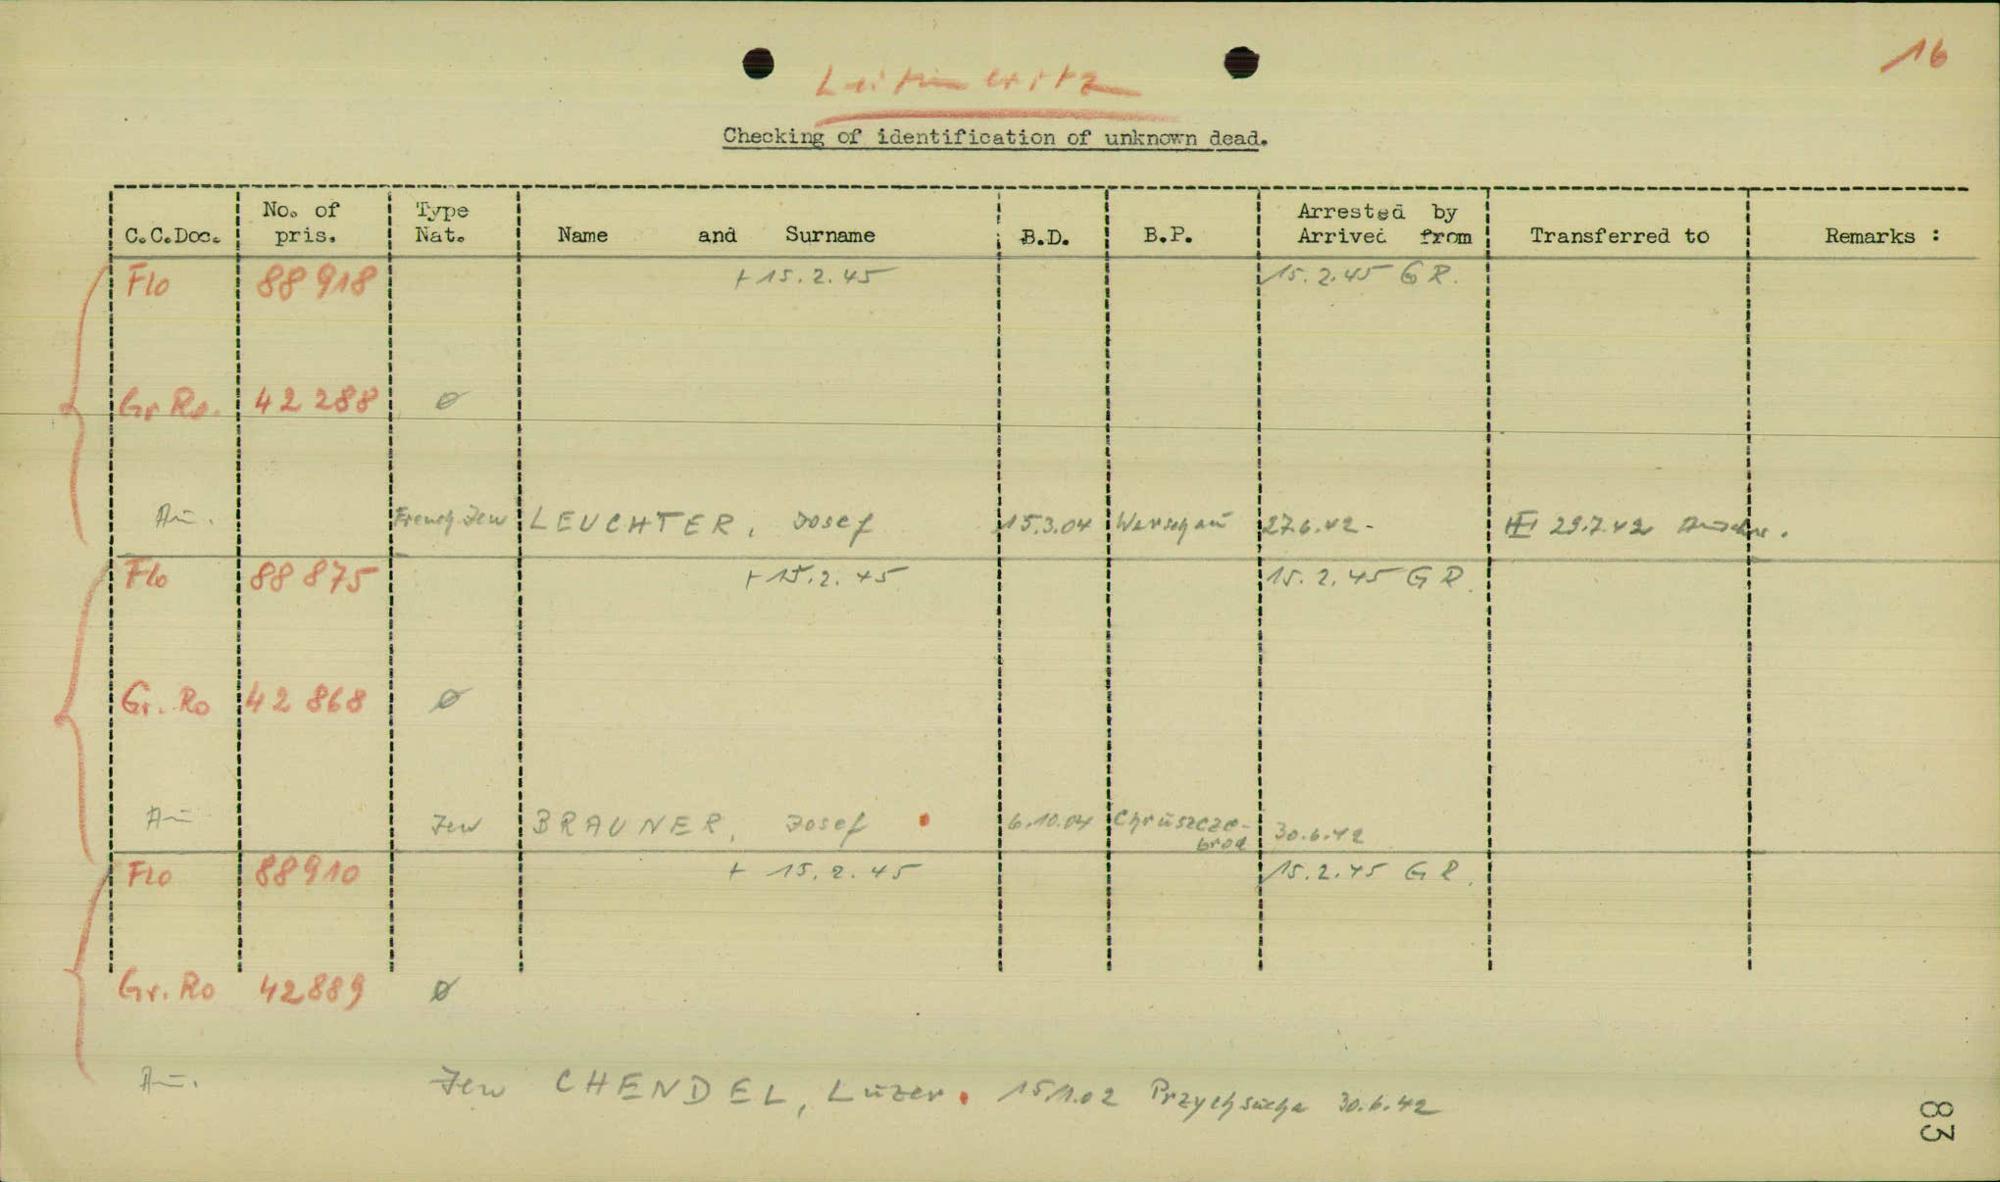 16
Leitmeritz
Checking of identification of unknown dead.
C.C.Doc. No. of pris. Type Nat. Name and Surname B.D. B.P. Arrested by Arrived from Transferred to Remarks :
Flo 88918 + 15.2.45 15.2.45 GR.
Gr Ro. 42288 ø
Au. French Jew LEUCHTER, Josef 15.3.04 Warschau 27.6.42 - 29.7.42
Flo 88875 + 15.2.45 15.2.45 GR.
Gr. Ro 42868 ø
Au Jew BRAUNER, Josef 6.10.04 Chruszczo-
brod 30.6.42
Flo 88910 + 15.2.45 15.2.45 GR.
Gr. Ro 42889 ø
Au. Jew CHENDEL, Luzer. 15.1.02 Przychsucha 30.6.42
83